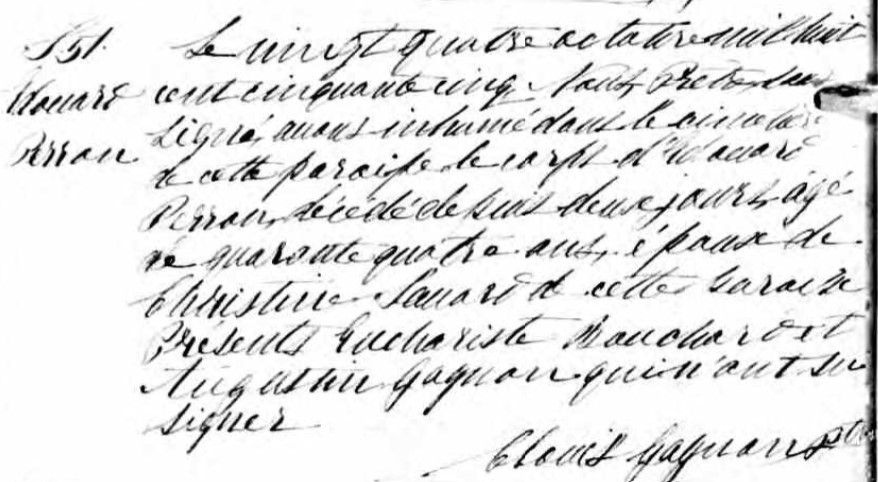 S51. Le vingt quatre octobre mil huit
Edouard cent cinquante cinq Nous, Prêtre, sous
Perron signé, avons inhumé dans le cimetière
de cette paroisse le corps d'Edouard
Perron, décédé depuis deux jours, agé
de quarante quatre ans, époux de
Christine Savard de cette paroisse
Présents Euchariste Bouchard et
Augustin Gagnon qui n'ont su
signer
Clovis Gagnon Ptre